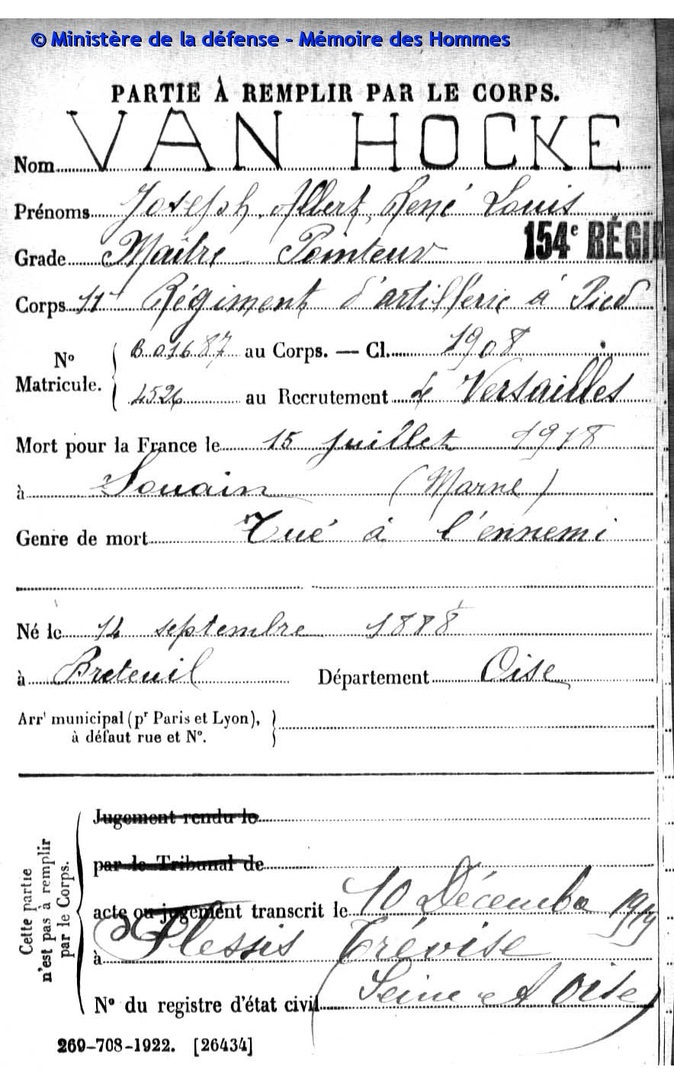 © Ministère de la défense - Mémoire des Hommes
PARTIE À REMPLIR PAR LE CORPS.
Nom VAN HOCKE
Prénoms Joseph Albert René Louis
Grade Maître Pointeur 154e RÉGI
Corps 11e Régiment d'artillerie à Pied
N° Matricule. { B.01687 au Corps. — Cl. 1908
4526 au Recrutement de Versailles
Mort pour la France le 15 juillet 1918
à Souain (Marne)
Genre de mort Tué à l'ennemi
Né le 14 septembre 1888
à Breteuil Département Oise
Arrt municipal (pr Paris et Lyon),
à défaut rue et N°. }
Cette partie n'est pas à remplir par le Corps.
Jugement rendu le
par le Tribunal de
acte ou jugement transcrit le 10 Décembre 1919
à Plessis Trévise
(Seine et Oise)
N° du registre d'état civil
269-708-1922. [26434]